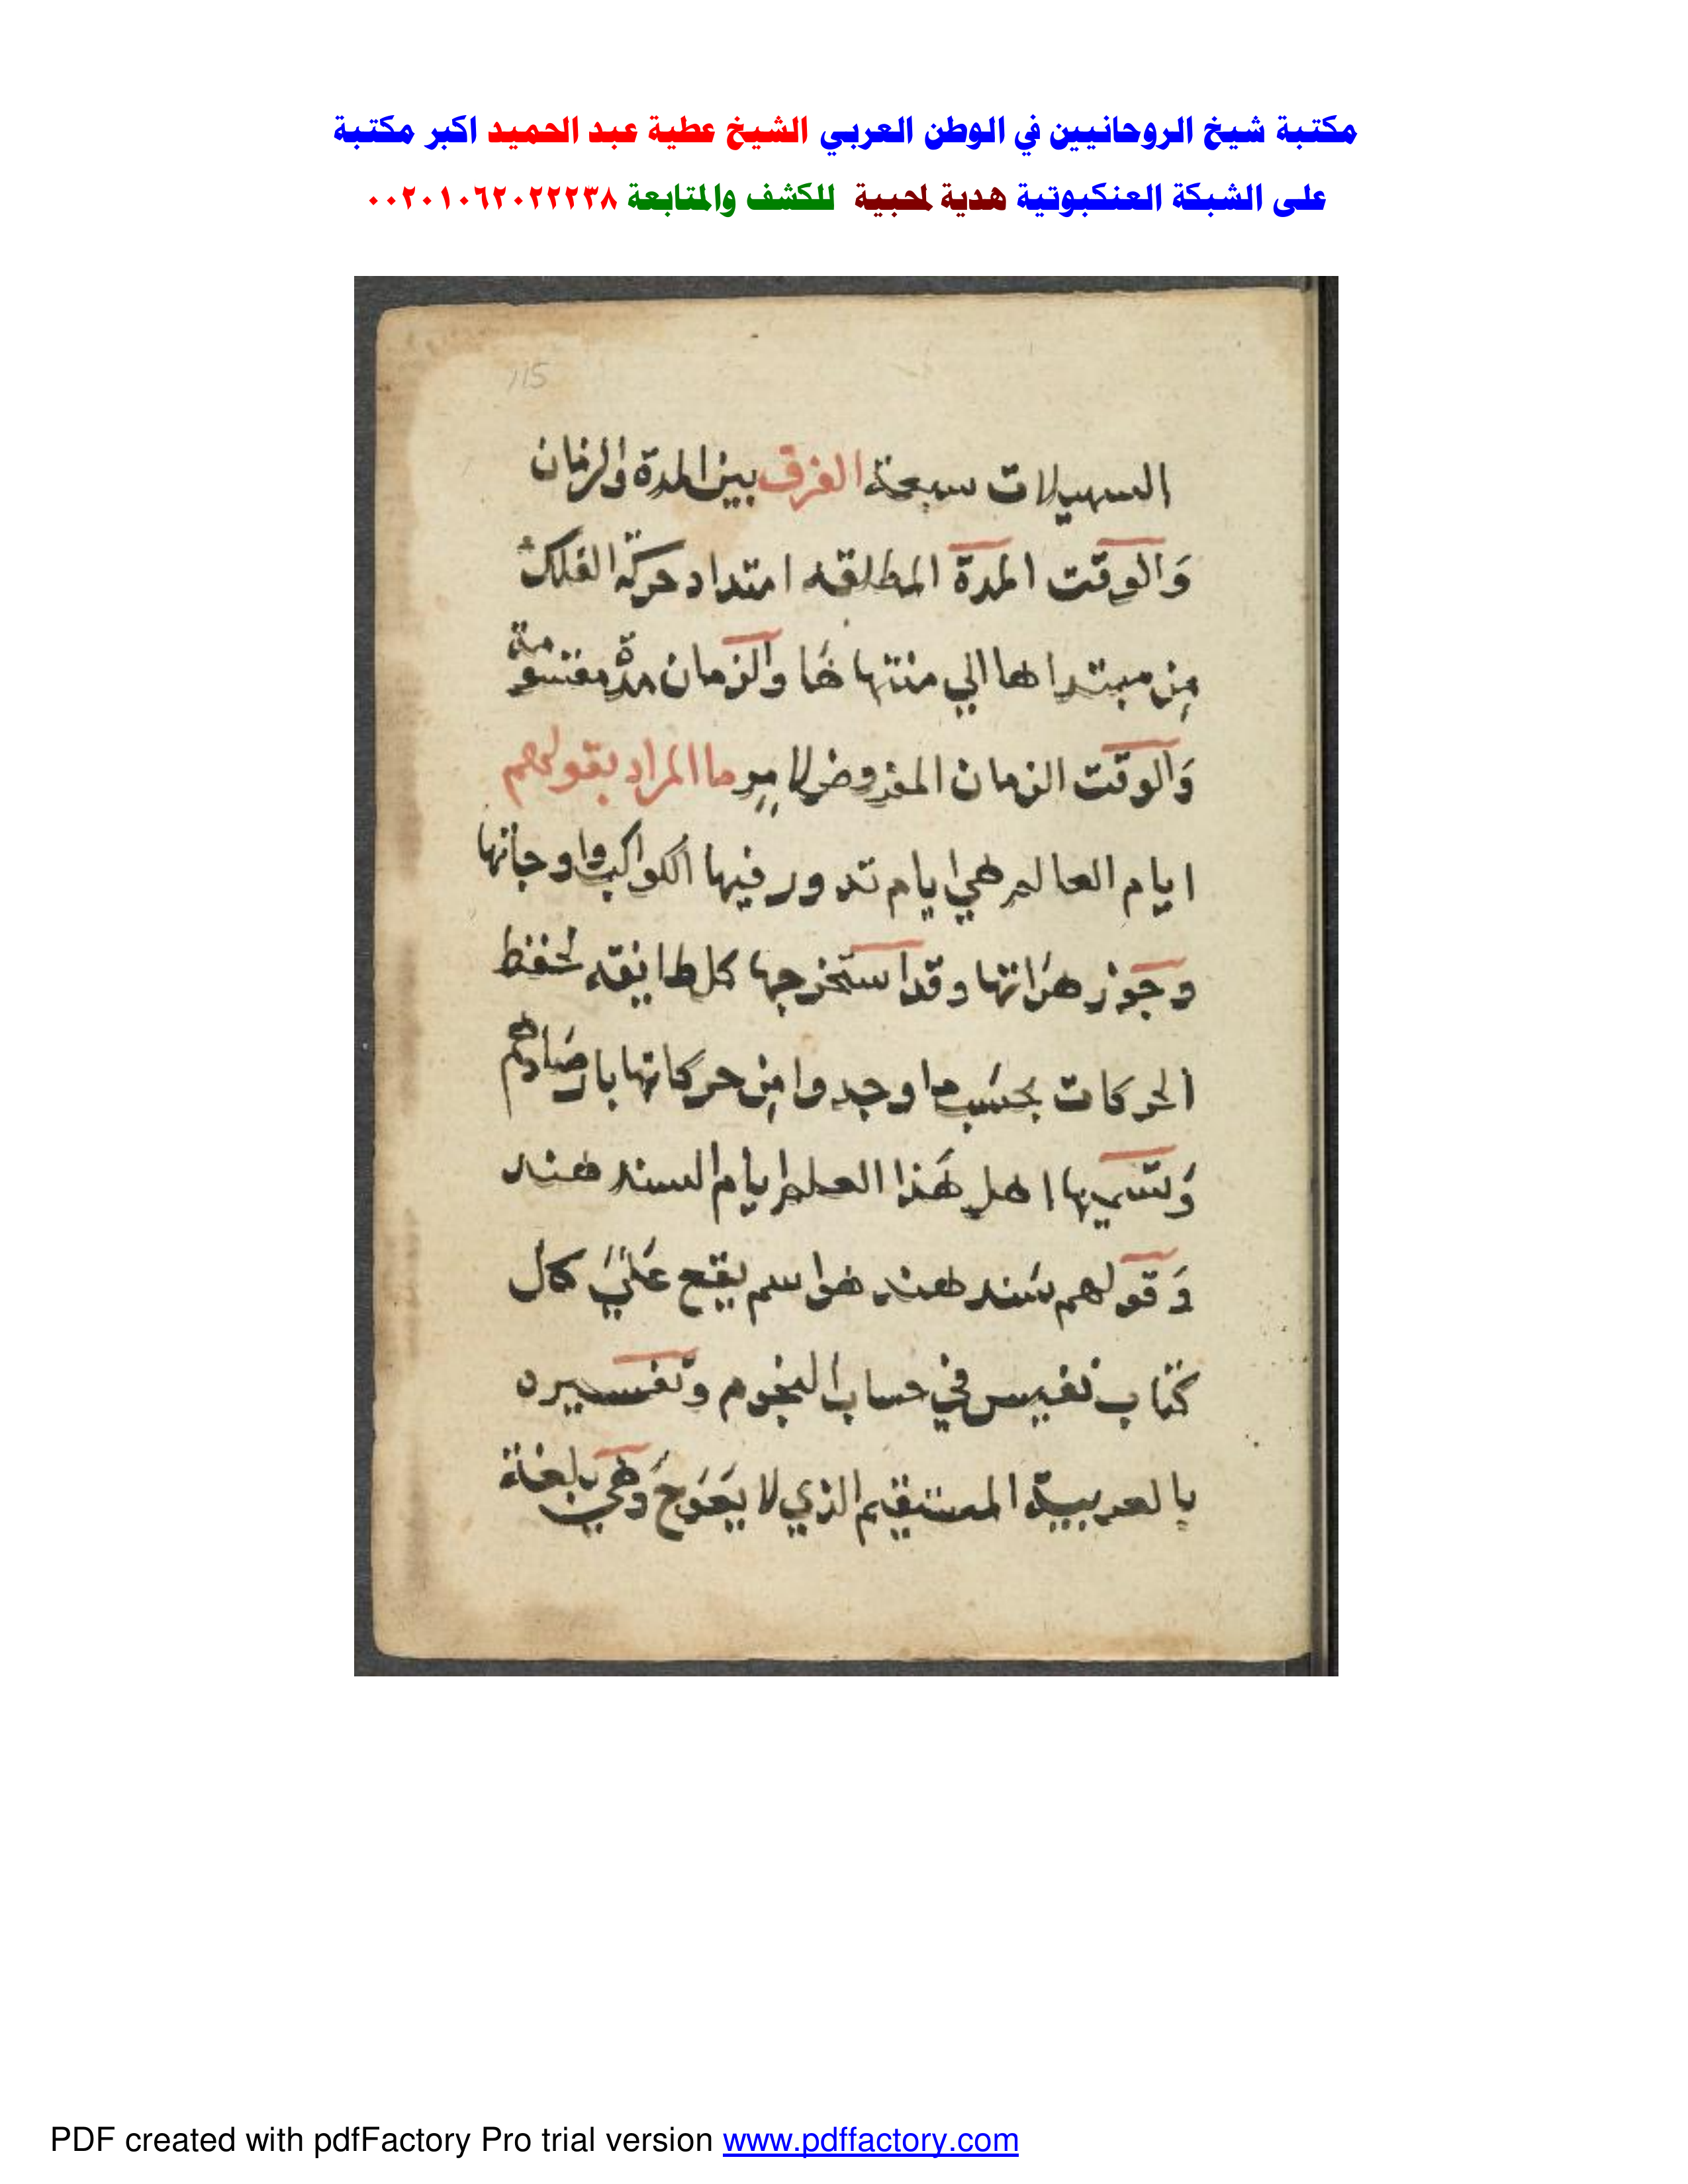 مكتبة شيخ الروحانيين في الوطن العربي الشيخ عطية عبد الحميد اكبر مكتبة
على الشبكة العنكبوتية هدية لمحبية للكشف والمتابعة ٠٠٢٠١٠٦٢٠٢٢٢٣٨
115
السهيلات سبعة الفرق بين المدة والزمان
وَالوقت المدة المطلقه امتداد حركة الفلك
مِن مبتداها الي منتهاها والزمان مدة مقسومة
وَالوقت الزمان المفروض لامر ما المراد بقولهم
ايام العالم هي ايام تدور فيها الكواكب واوجاتها
وجوزهراتها وقد استخرجها كل طايفه لحفظ
الحركات بحسَب ما وجدوا مِن حركاتها بارصادهم
وَتسميها اهل هَذا العلم ايام السند هند
وَقولهم سَند هند هو اسم يقع عَلَي كل
كتاب نفيس في حساب النجوم وتفسيره
بالعربية المستقيم الذي لا يعَوج وَهي بلغة
PDF created with pdfFactory Pro trial version www.pdffactory.com